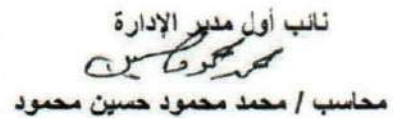 نائب أول مدير الإدارة
محاسب / محمد محمود حسين محمود